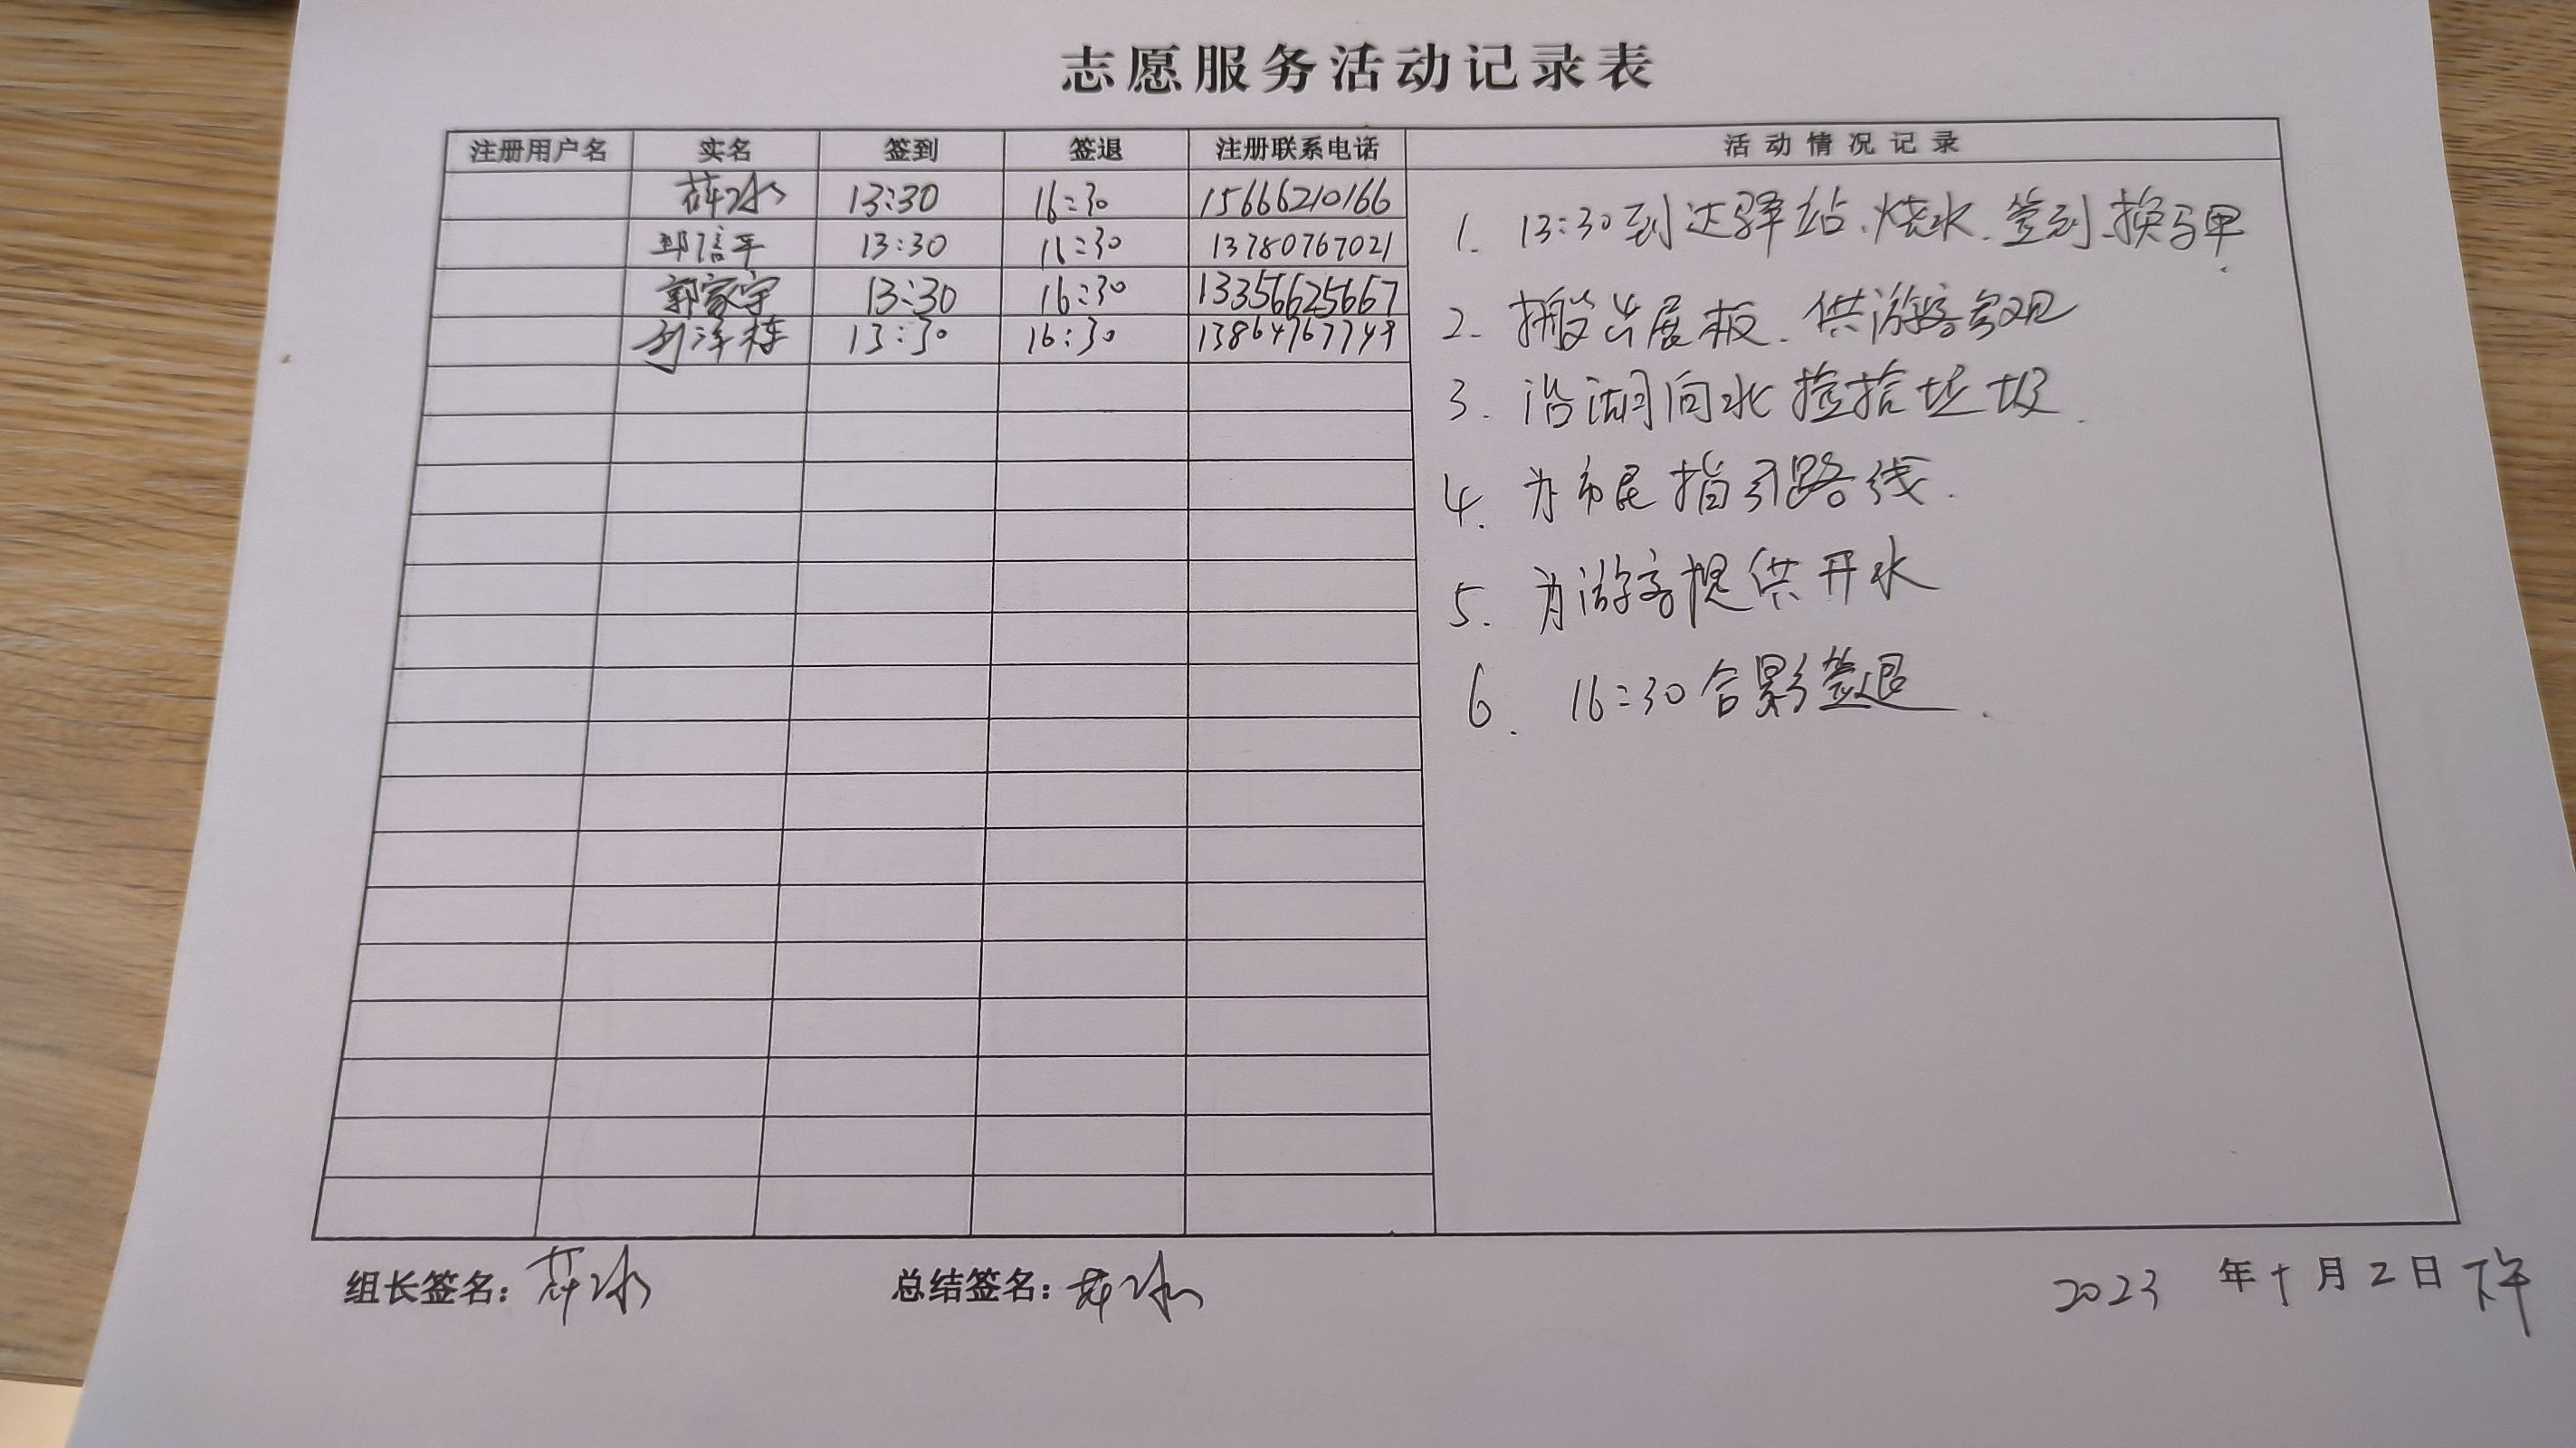 志愿服务活动记录表
注册用户名 实名 签到 签退 注册联系电话 活动情况记录
薛冰 13:30 16:30 15666210166
邱信平 13:30 16:30 13780767021
郭家宇 13:30 16:30 13356625667
刘泽栋 13:30 16:30 13864767749
1. 13:30到达驿站、烧水、签到、换马甲.
2. 搬出展板、供游客参观
3. 沿湖向北捡拾垃圾.
4. 为市民指引路线.
5. 为游客提供开水
6. 16:30合影签退.
组长签名：薛冰 总结签名：薛冰 2023年 月2日下午